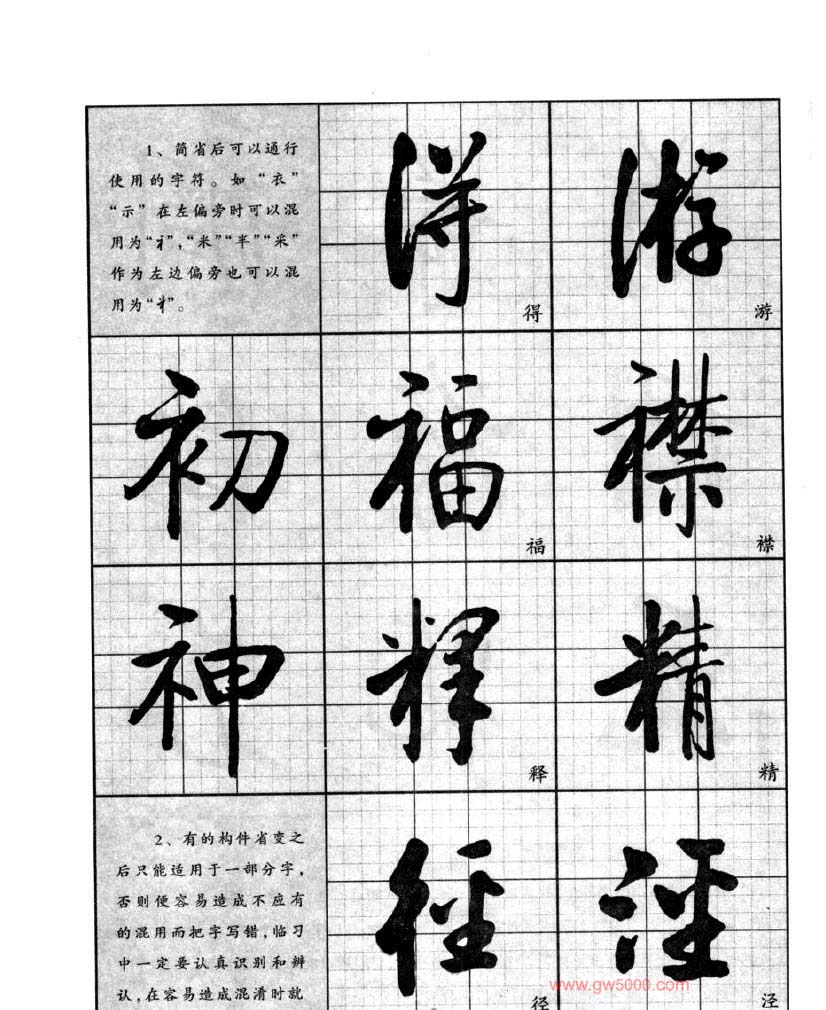 1、简省后可以通行
使用的字符。如“衣”
“示”在左偏旁时可以混
用为“礻”,“米”“半”“采”
作为左边偏旁也可以混
用为“”。
得 游
得 游
初 福 襟
福 襟
神 释 精
释 精
2、有的构件省变之
后只能适用于一部分字,
否则便容易造成不应有
的混用而把字写错,临习
中一定要认真识别和辨
认,在容易造成混淆时就
径 泾
径 泾
www.gw5000.com